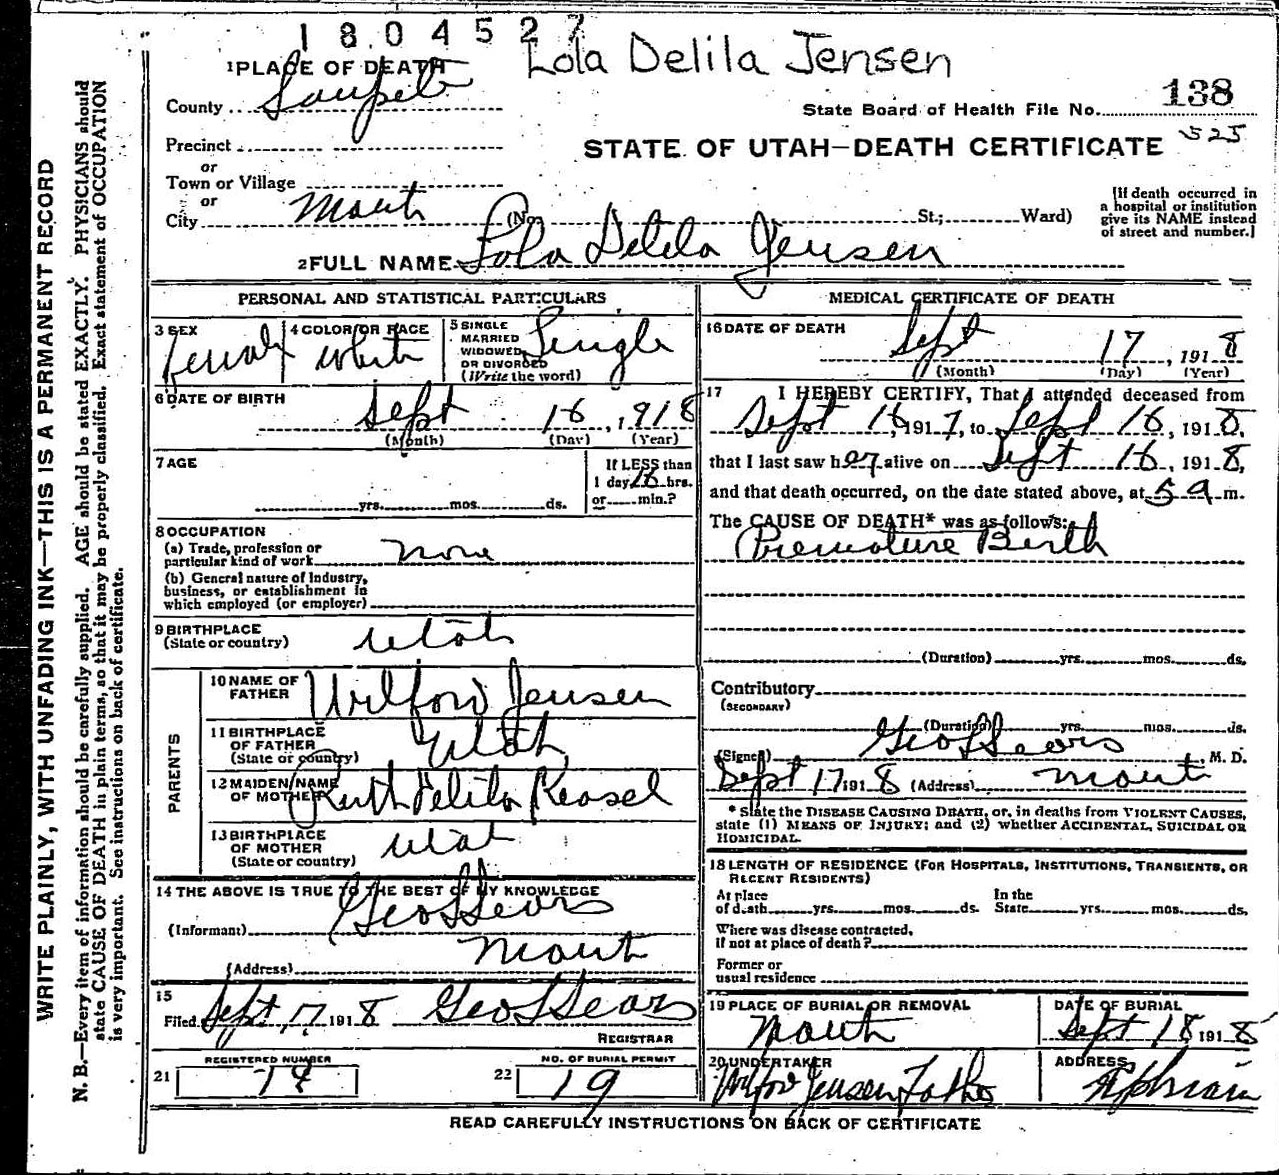 1804527
Lola Delila Jensen
1 PLACE OF DEATH
County Sanpete
State Board of Health File No. 138
525
Precinct
STATE OF UTAH—DEATH CERTIFICATE
or
Town or Village
or
City Manti (No. St.; Ward)
[If death occurred in
a hospital or institution
give its NAME instead
of street and number.]
2 FULL NAME Lola Delila Jensen
PERSONAL AND STATISTICAL PARTICULARS
3 SEX
female
4 COLOR OR RACE
white
5 SINGLE
MARRIED
WIDOWED
OR DIVORCED
(Write the word)
Single
6 DATE OF BIRTH
Sept 16, 1918
(Month) (Day) (Year)
7 AGE
yrs. mos. ds.
If LESS than
1 day 16 hrs.
or min.?
8 OCCUPATION
(a) Trade, profession or
particular kind of work none
(b) General nature of industry,
business, or establishment in
which employed (or employer)
9 BIRTHPLACE
(State or country) Utah
PARENTS
10 NAME OF
FATHER Wilford Jensen
11 BIRTHPLACE
OF FATHER
(State or country) Utah
12 MAIDEN NAME
OF MOTHER Ruth Delila Keasel
13 BIRTHPLACE
OF MOTHER
(State or country) Utah
14 THE ABOVE IS TRUE TO THE BEST OF MY KNOWLEDGE
(Informant) Geo L Sears
(Address) Manti
15
Filed Sept 17 1918 Geo L Sears
REGISTRAR
REGISTERED NUMBER
21 74
NO. OF BURIAL PERMIT
22 19
MEDICAL CERTIFICATE OF DEATH
16 DATE OF DEATH
Sept 17, 1918
(Month) (Day) (Year)
17 I HEREBY CERTIFY, That I attended deceased from
Sept 16, 1917, to Sept 16, 1918,
that I last saw her alive on Sept 16, 1918,
and that death occurred, on the date stated above, at 5 a m.
The CAUSE OF DEATH* was as follows:
Premature Birth
(Duration) yrs. mos. ds.
Contributory
(SECONDARY)
(Duration) yrs. mos. ds.
(Signed) Geo L Sears M. D.
Sept 17 1918 (Address) Manti
* State the DISEASE CAUSING DEATH, or, in deaths from VIOLENT CAUSES,
state (1) MEANS OF INJURY; and (2) whether ACCIDENTAL, SUICIDAL OR
HOMICIDAL.
18 LENGTH OF RESIDENCE (FOR HOSPITALS, INSTITUTIONS, TRANSIENTS, OR
RECENT RESIDENTS)
At place
of death yrs. mos. ds.
In the
State yrs. mos. ds.
Where was disease contracted,
if not at place of death?
Former or
usual residence
19 PLACE OF BURIAL OR REMOVAL
Manti
DATE OF BURIAL
Sept 18 1918
20 UNDERTAKER
Wilford Jensen Father
ADDRESS
Ephraim
READ CAREFULLY INSTRUCTIONS ON BACK OF CERTIFICATE
WRITE PLAINLY, WITH UNFADING INK—THIS IS A PERMANENT RECORD
N. B.—Every item of information should be carefully supplied. AGE should be stated EXACTLY. PHYSICIANS should
state CAUSE OF DEATH in plain terms, so that it may be properly classified. Exact statement of OCCUPATION
is very important. See instructions on back of certificate.